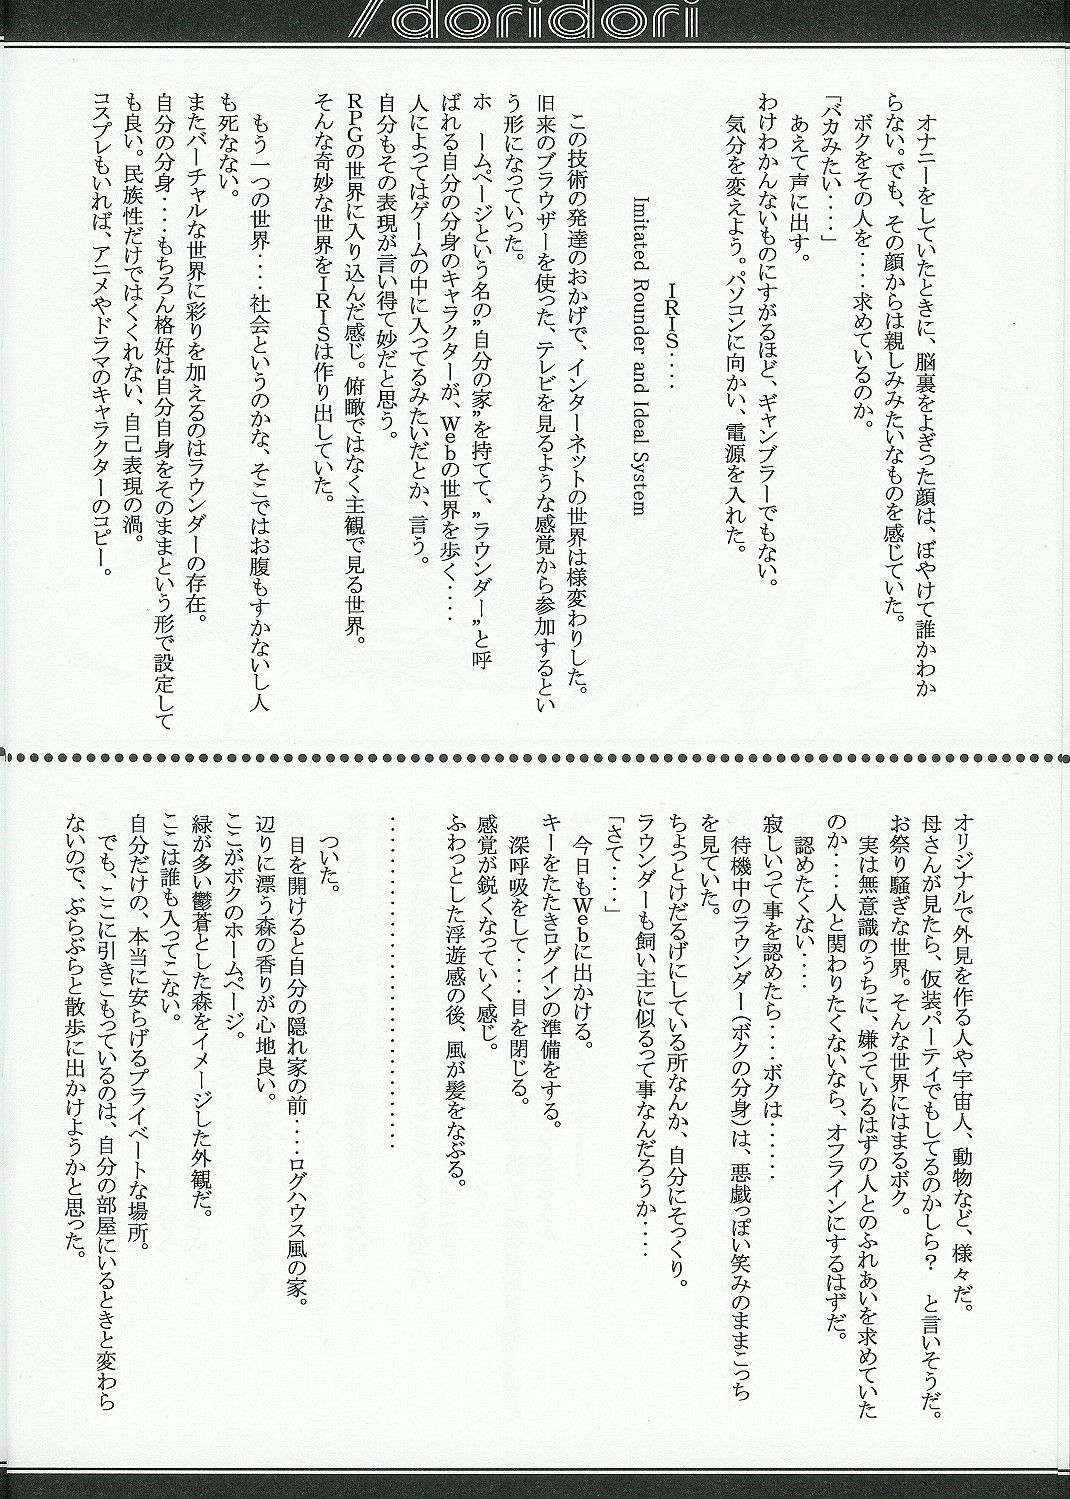 /doridori
オナニーをしていたときに、脳裏をよぎった顔は、ぼやけて誰かわか
らない。でも、その顔からは親しみみたいなものを感じていた。
ボクをその人を‥‥求めているのか。
「バカみたい‥‥」
あえて声に出す。
わけわかんないものにすがるほど、ギャンブラーでもない。
気分を変えよう。パソコンに向かい、電源を入れた。
IRIS‥‥
Imitated Rounder and Ideal System
この技術の発達のおかげで、インターネットの世界は様変わりした。
旧来のブラウザーを使った、テレビを見るような感覚から参加するとい
う形になっていった。
ホ　ームページという名の”自分の家”を持てて、”ラウンダー”と呼
ばれる自分の分身のキャラクターが、Webの世界を歩く‥‥
人によってはゲームの中に入ってるみたいだとか、言う。
自分もその表現が言い得て妙だと思う。
RPGの世界に入り込んだ感じ。俯瞰ではなく主観で見る世界。
そんな奇妙な世界をIRISは作り出していた。
もう一つの世界‥‥社会というのかな、そこではお腹もすかないし人
も死なない。
またバーチャルな世界に彩りを加えるのはラウンダーの存在。
自分の分身‥‥もちろん格好は自分自身をそのままという形で設定して
も良い。民族性だけではくくれない、自己表現の渦。
コスプレもいれば、アニメやドラマのキャラクターのコピー。
オリジナルで外見を作る人や宇宙人、動物など、様々だ。
母さんが見たら、仮装パーティでもしてるのかしら？　と言いそうだ。
お祭り騒ぎな世界。そんな世界にはまるボク。
実は無意識のうちに、嫌っているはずの人とのふれあいを求めていた
のか‥‥人と関わりたくないなら、オフラインにするはずだ。
認めたくない‥‥
寂しいって事を認めたら‥‥ボクは‥‥‥
待機中のラウンダー（ボクの分身）は、悪戯っぽい笑みのままこっち
を見ていた。
ちょっとけだるげにしている所なんか、自分にそっくり。
ラウンダーも飼い主に似るって事なんだろうか‥‥
「さて‥‥」
今日もWebに出かける。
キーをたたきログインの準備をする。
深呼吸をして‥‥目を閉じる。
感覚が鋭くなっていく感じ。
ふわっとした浮遊感の後、風が髪をなぶる。
‥‥‥‥‥‥‥‥‥‥‥‥‥‥‥‥
ついた。
目を開けると自分の隠れ家の前‥‥ログハウス風の家。
辺りに漂う森の香りが心地良い。
ここがボクのホームページ。
緑が多い鬱蒼とした森をイメージした外観だ。
ここは誰も入ってこない。
自分だけの、本当に安らげるプライベートな場所。
でも、ここに引きこもっているのは、自分の部屋にいるときと変わら
ないので、ぶらぶらと散歩に出かけようかと思った。